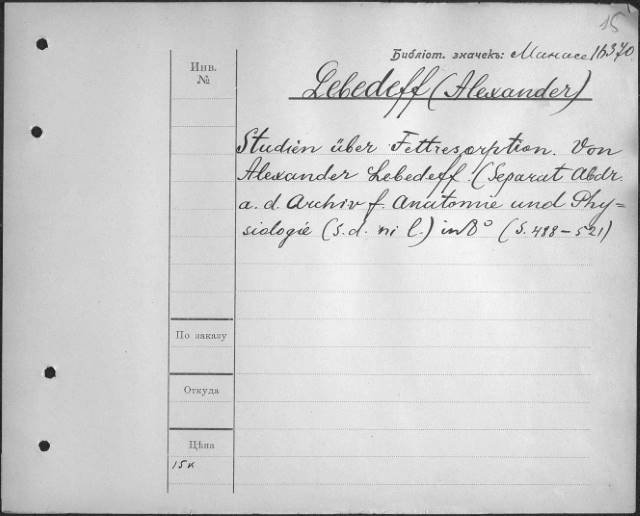 15
Библіот. значекъ: Манасе 16370
Инв.
№
Lebedeff (Alexander)
Studien über Fettresorption. Von
Alexander Lebedeff. (Separat Abdr.
a. d. Archiv f. Anatomie und Phy=
siologie (S. d. ni l.) in 8° (S. 488-521)
По заказу
Откуда
Цѣна
15 к